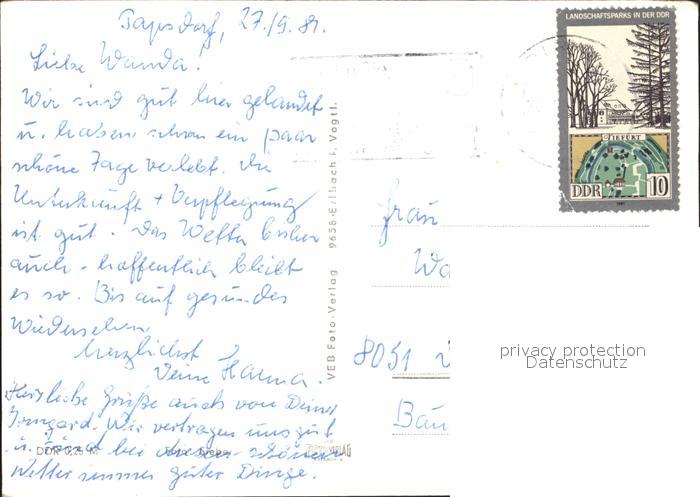 Tapsdorf, 27./9. 81.
Liebe Wanda!
Wir sind gut hier gelandet
u. haben schon ein paar
schöne Tage verlebt. Die
Unterkunft + Verpflegung
ist gut. Das Wetter bisher
auch - hoffentlich bleibt
es so. Bis auf gesundes
Wiedersehen
herzlichst
Deine Hanna.
Herzliche Grüße auch von Deiner
Irmgard. Wir vertragen uns gut
u. sind bei diesem schönen
Wetter immer guter Dinge.
DDR 0,25 M
VEB Foto-Verlag 9658 Erlbach i. Vogtl.
LANDSCHAFTSPARKS IN DER DDR
TIEFURT
DDR 10
1981
Frau
Wa
8051
Bau
privacy protection
Datenschutz